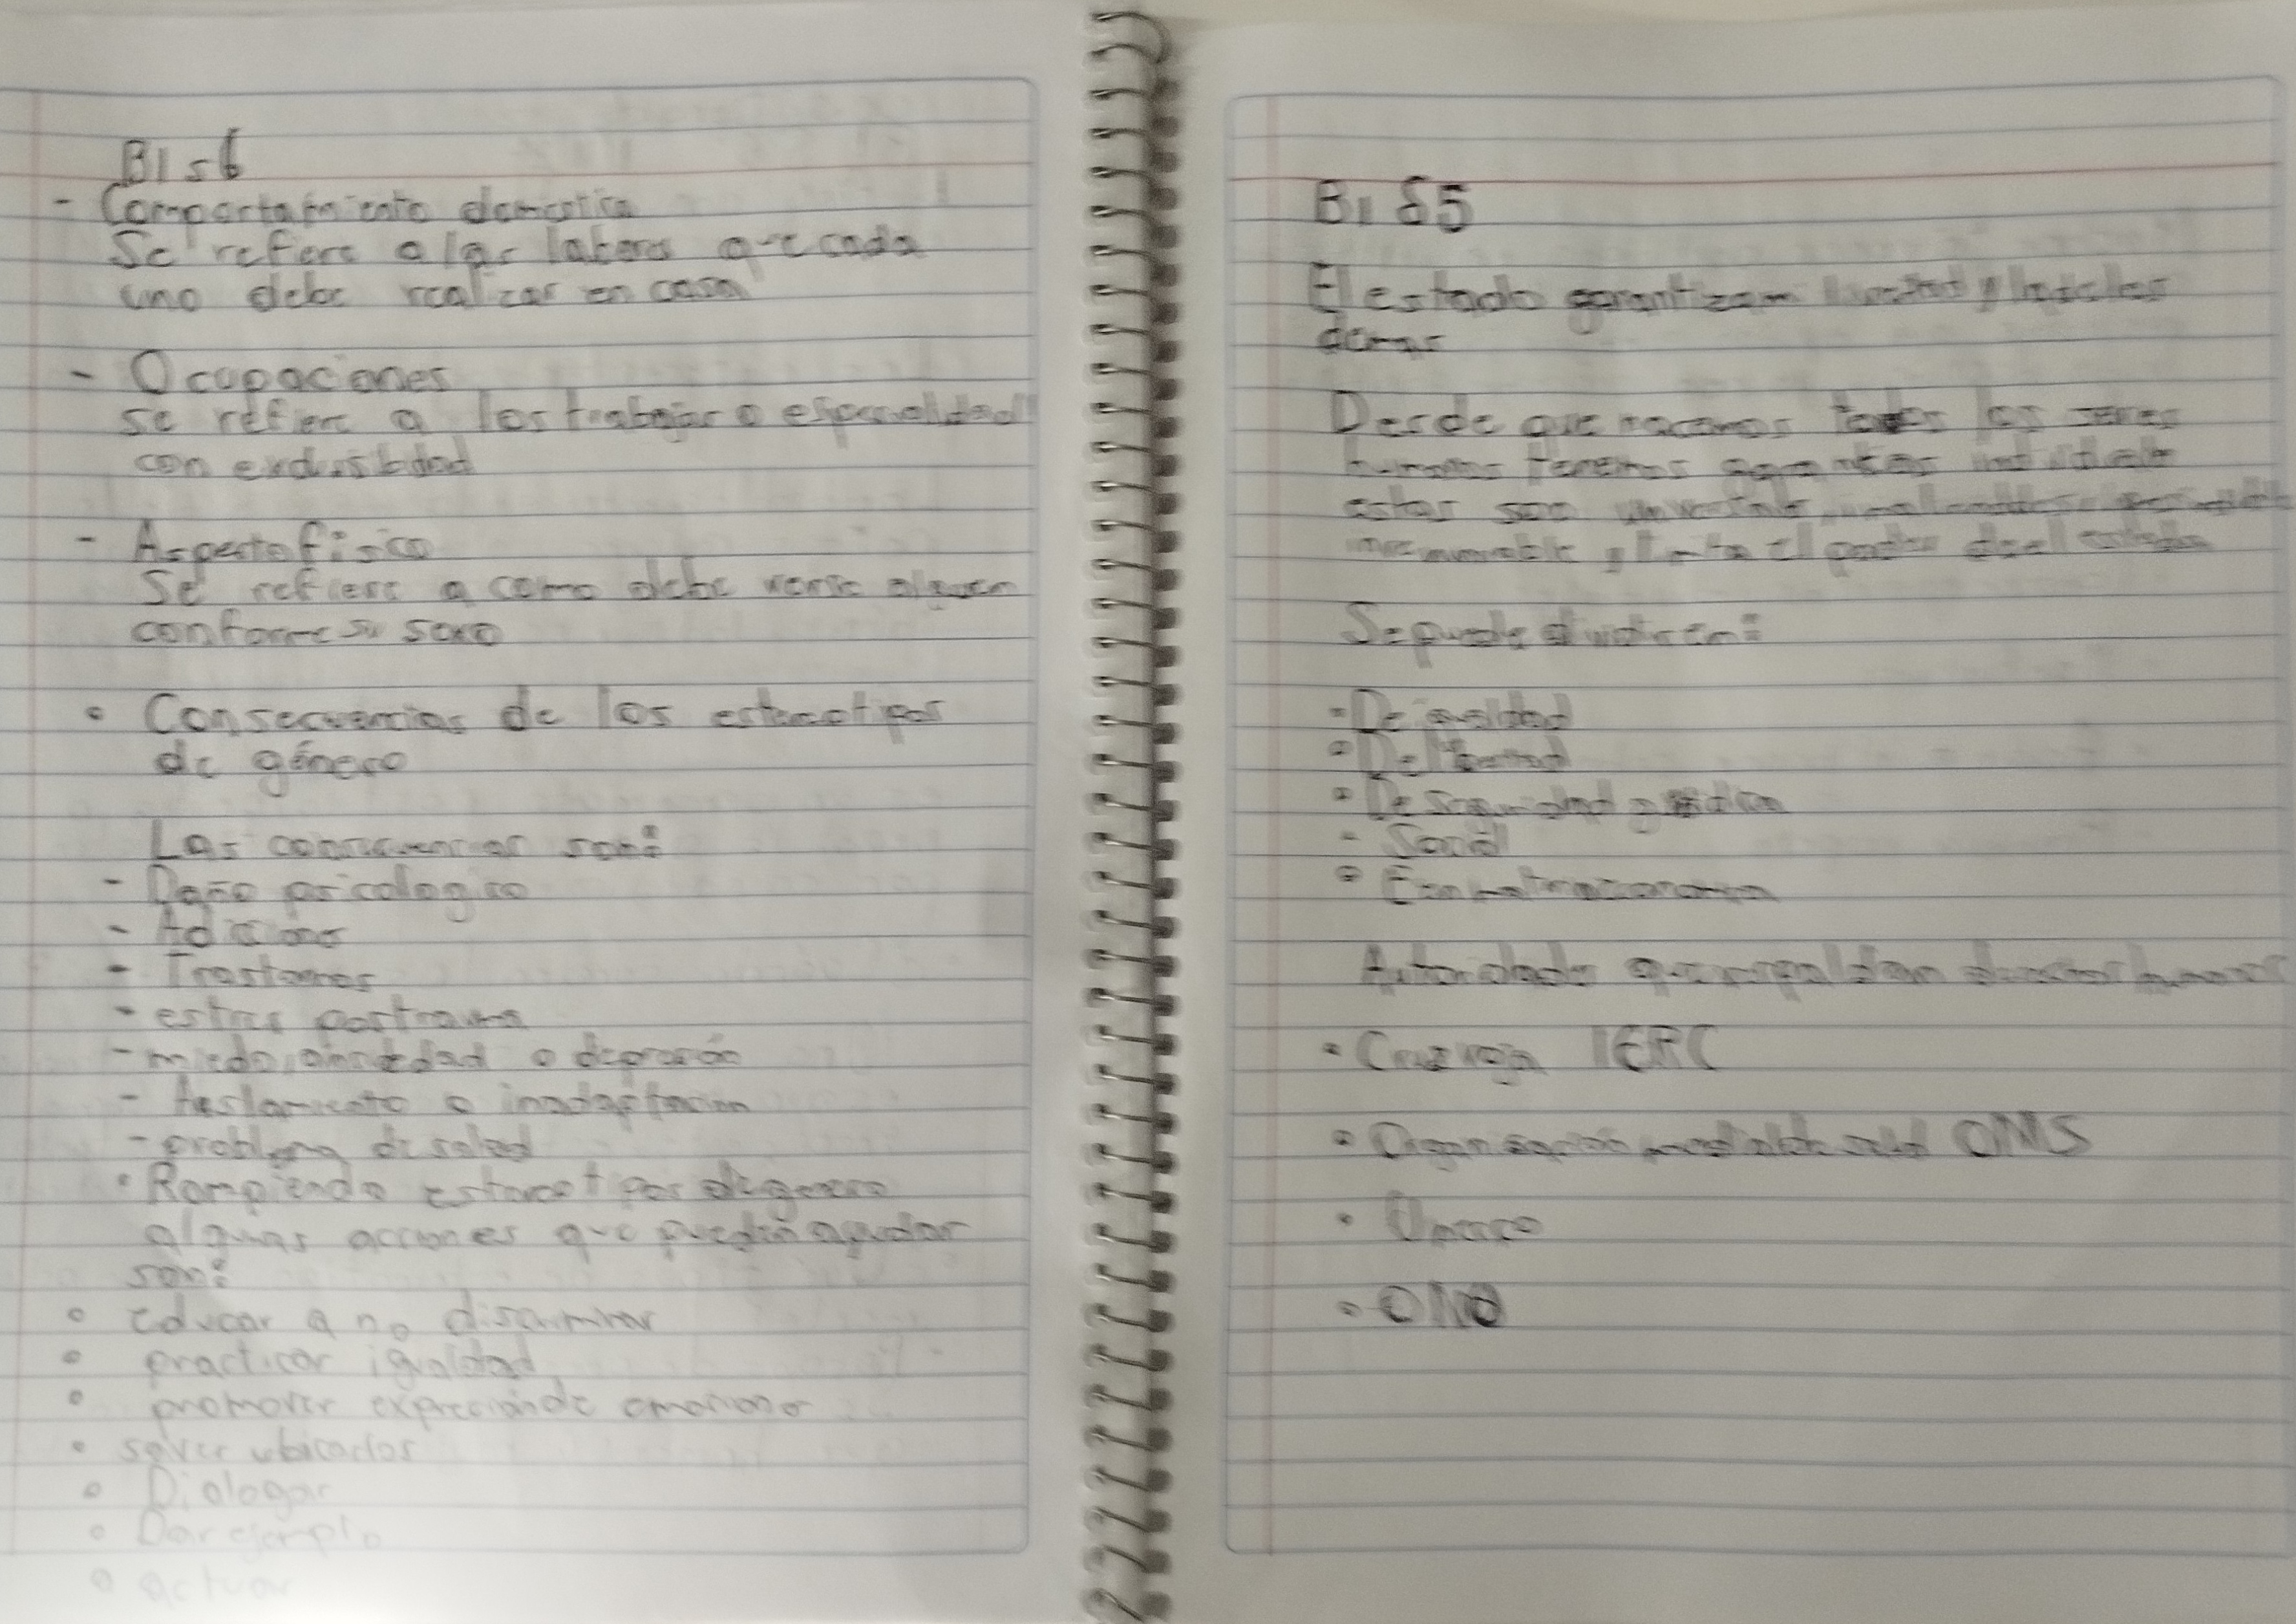 B1 s6
- Comportamiento domestico
Se refiere a las labores que cada
uno debe realizar en casa
- Ocupaciones
se refiere a los trabajos o especialidad
con exclusibidad
- Aspecto fisico
Se refiere a como debe verse alguien
conforme su sexo
• Consecuencias de los estereotipos
de género
Las consecuencias son:
- Daño psicologico
- Adicciones
- Trastornos
- estres postrauma
- miedo, ansiedad o depresión
- Aislamiento o inadaptacion
- problema de salud
• Rompiendo estereotipos de genero
algunas acciones que pueden ayudar
son:
• educar a no discriminar
• practicar igualdad
• promover expresión de emociones
• ubicarlos
• Dialogar
• Dar ejemplo
• actuar
B1 S5
El estado garantizam
demas
Desde que nacemos todos los seres
humanos tenemos garantias
estas son
y limita el poder del estado
Se puede dividir en:
• De igualdad
• De libertad
• De seguridad juridica
• Social
•
Autoridades que respaldan derechos humanos
• Cruz roja
• Organización mundial de salud OMS
•
•